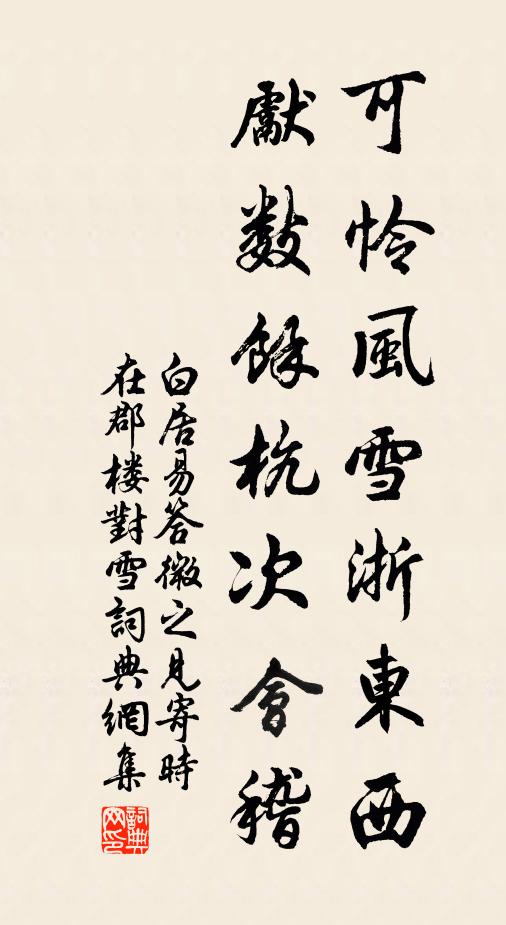 可怜風雪浙東西
獻數餘杭次會稽
白居易答微之見寄時
在郡楼對雪詞典網集
詞典
网印